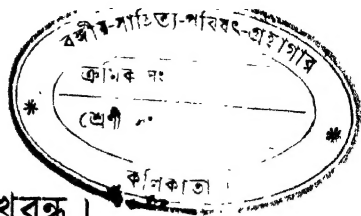 বঙ্গীয়-সাহিত্য-পরিষৎ-গ্রন্থাগার
ক্রমিক নং
শ্রেণী নং
কলিকাতা